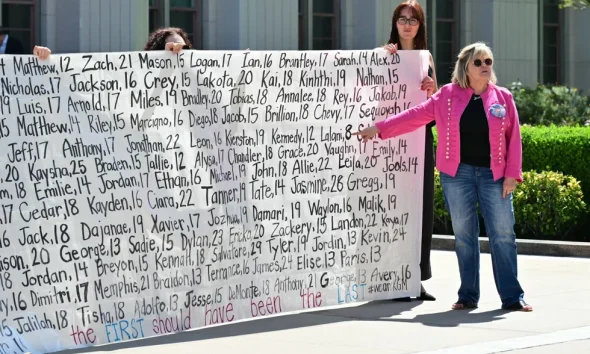 Matthew, 12 Zach, 21 Mason, 15 Logan, 17 Ian, 16 Brantley, 17 Sarah, 14 Alex, 20
Nicholas, 17 Jackson, 16 Grey, 15 Lakota, 20 Kai, 18 Kinhthi, 19 Nathan, 15
19 Luis, 17 Arnold, 17 Miles, 19 Bradley, 20 Tobias, 18 Annalee, 18 Rey, 16 Jakob, 19
15 Matthew, 14 Riley, 15 Marciano, 16 Diego, 18 Jacob, 15 Brillion, 18 Chevy, 17 Sequoyah
Jeff, 17 Anthony, 17 Jonathan, 22 Leon, 16 Kerston, 19 Kennedy, 12 Lalani, 8
20 Kaysha, 25 Braden, 15 Tallie, 12 Alysa, 17 Chandler, 18 Grace, 20 Vaughn, 17 Emily, 14
18 Emilie, 14 Jordan, 17 Ethan, 16 Michael, 19 John, 18 Allie, 22 Leila, 20 Jools, 14
17 Cedar, 18 Kayden, 16 Ciara, 22 Tanner, 19 Tate, 14 Jasmine, 28 Gregg, 19
16 Jack, 18 Dajanae, 19 Xavier, 17 Jozua, 19 Damari, 19 Waylon, 16 Malik, 19
20 George, 13 Sadie, 15 Dylan, 23 Ericka, 20 Zackery, 17 Landon, 22 Kaya, 17
18 Jordan, 14 Breyon, 15 Kennah, 18 Salvatore, 29 Tyler, 19 Jordin, 13 Kevin, 24
16 Dimitri, 17 Memphis, 21 Braidon, 13 Terrance, 16 James, 24 Elise, 13 Paris, 13
15 Jaliah, 18 Tisha, 18 Adolfo, 13 Jesse, 15 DeMonte, 18 Anthony, 21 George, 13 Avery, 16
the FIRST should have been the LAST